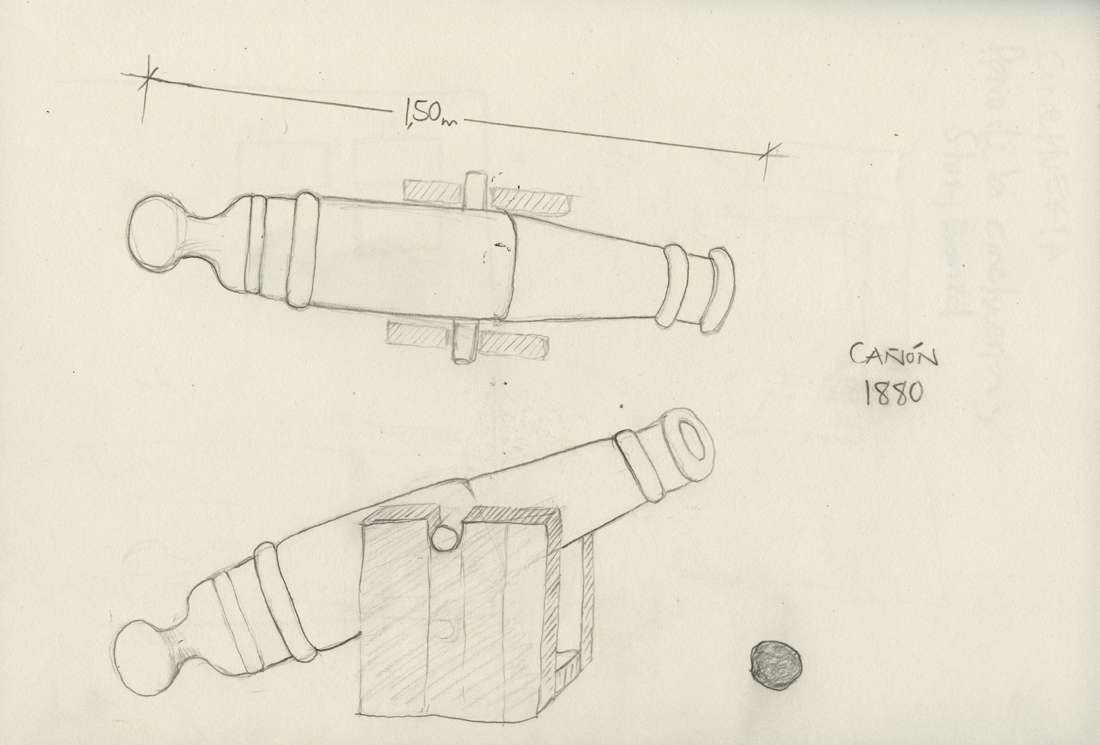 1,50m
CAÑÓN
1880